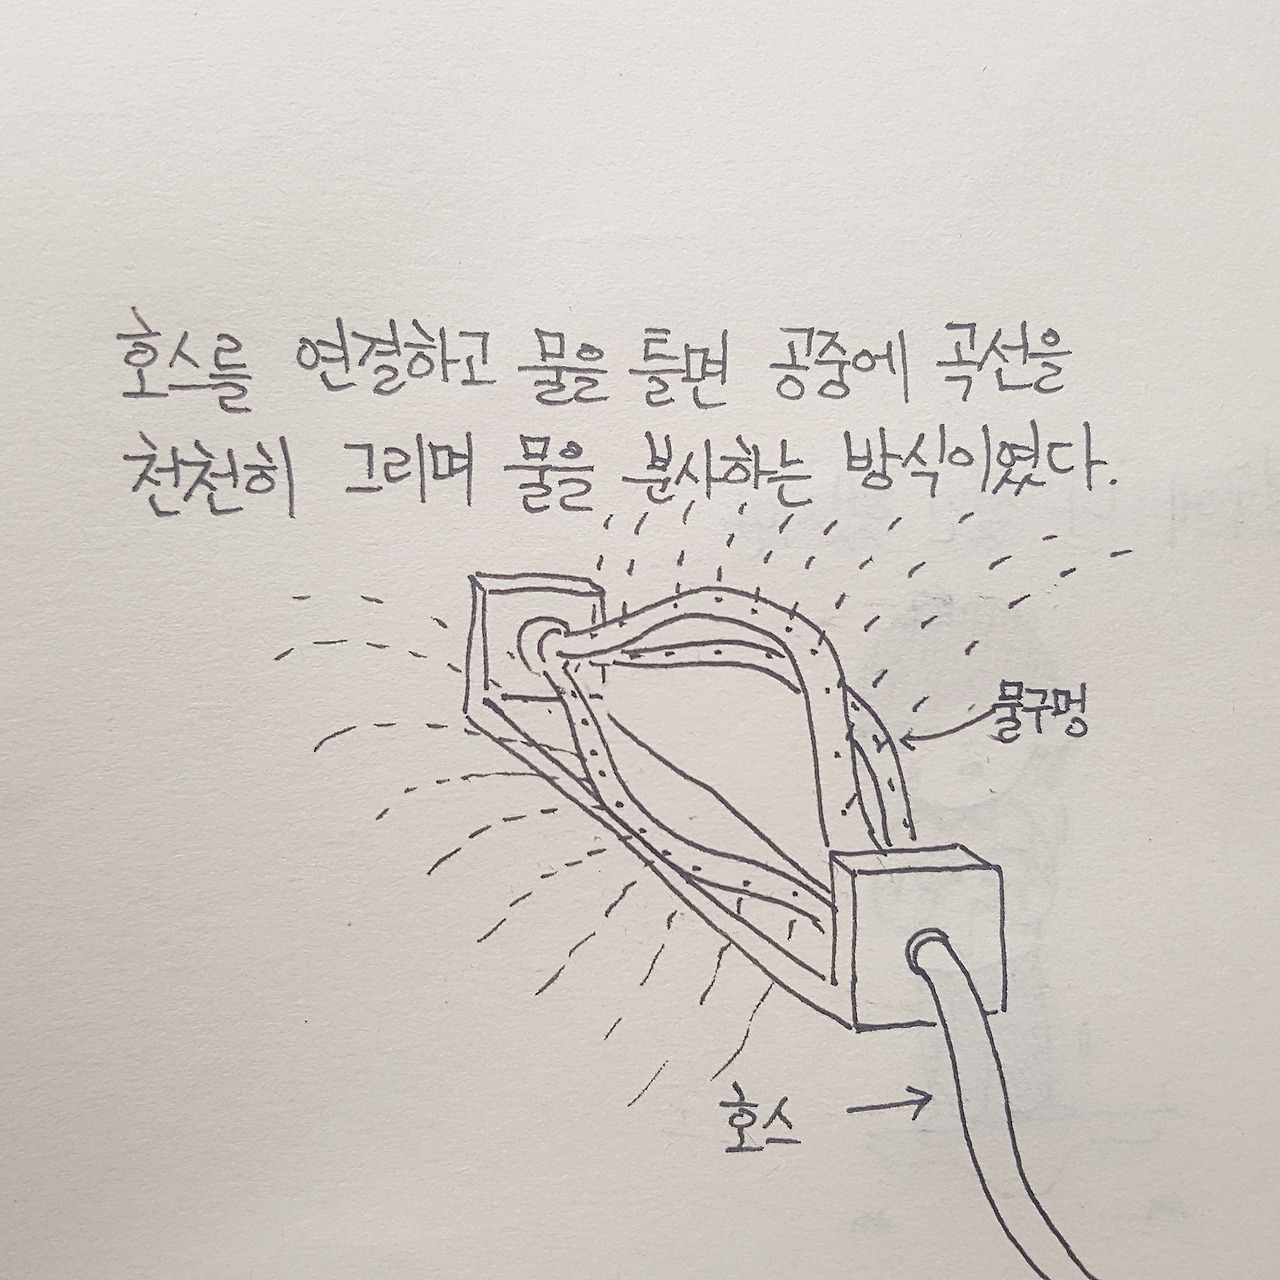 호스를 연결하고 물을 틀면 공중에 곡선을
천천히 그리며 물을 분사하는 방식이였다.
물구멍
호스